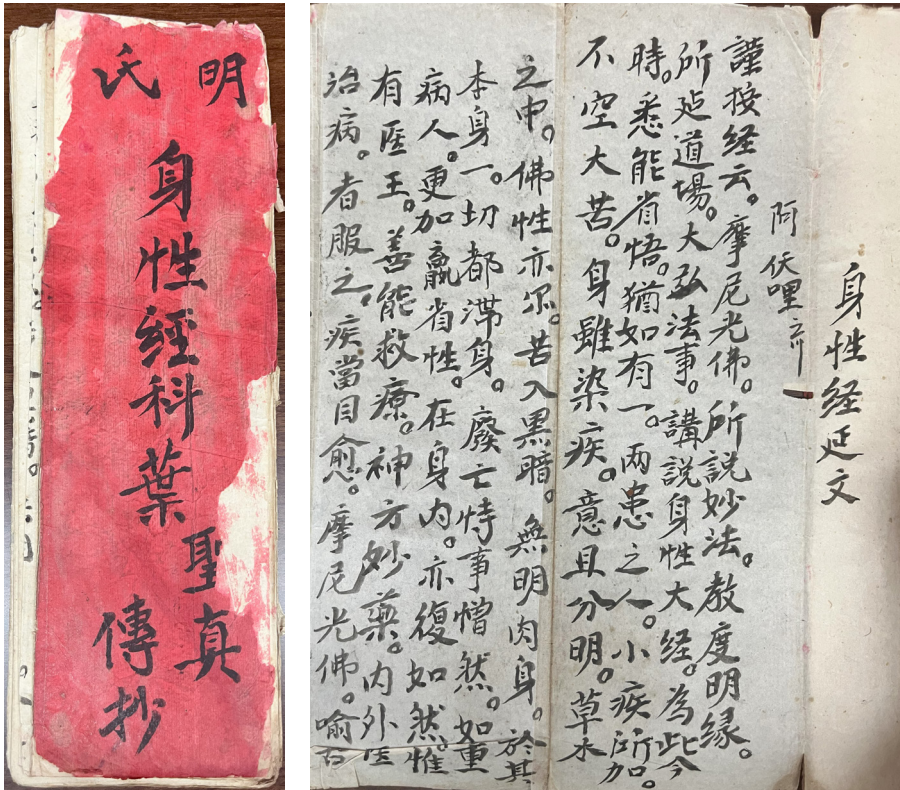 明氏
身性經科葉
聖真
傳抄
身性经延文
阿伕哩
謹按经云。摩尼光佛。所説妙法。教度明缘。
所延道場。大弘法事。講説身性大经。為此今
時。悉能省悟。猶如有一。两患之人。小疾所加。
不空大苦。身雖染疾。意且分明。草木
之中。佛性亦尔。苦入黑暗。無明肉身。於其
本身一。切都滞身。廢亡恃事憎然。如重
病人。更加羸省性。在身内。亦復如然。惟
有医王。善能救療。神方妙藥。内外医
治病。者服之。疾當目愈。摩尼光佛。喻